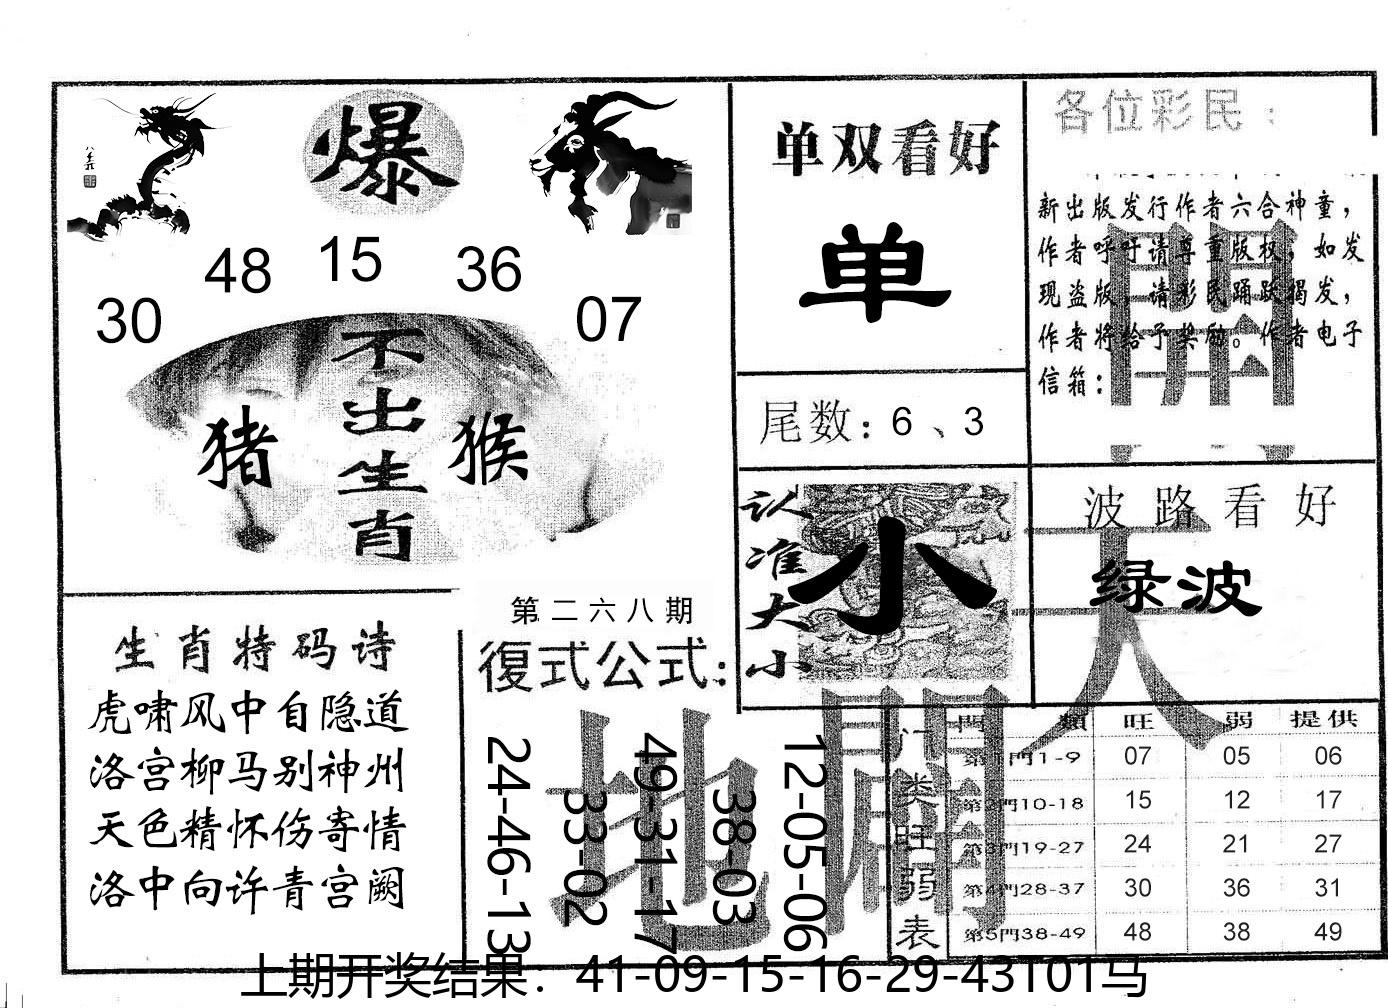 爆
48 15 36
30 07
不出生肖
猪 猴
单双看好
单
尾数：6、3
各位彩民：
新出版发行作者六合神童，
作者呼吁请尊重版权，如发
现盗版，请彩民踊跃揭发，
作者将给予奖励。作者电子
信箱：
認准大小
小
波路看好
绿波
生肖特码诗
虎啸风中自隐道
洛宫柳马别神州
天色精怀伤寄情
洛中向许青宫阙
第二六八期
復式公式：
24-46-13
33-02
49-31-17
38-03
12-05-06
天
地
門類 旺 弱 提供
门类旺弱表
第1門1-9 07 05 06
第2門10-18 15 12 17
第3門19-27 24 21 27
第4門28-37 30 36 31
第5門38-49 48 38 49
上期开奖结果：41-09-15-16-29-43T01马